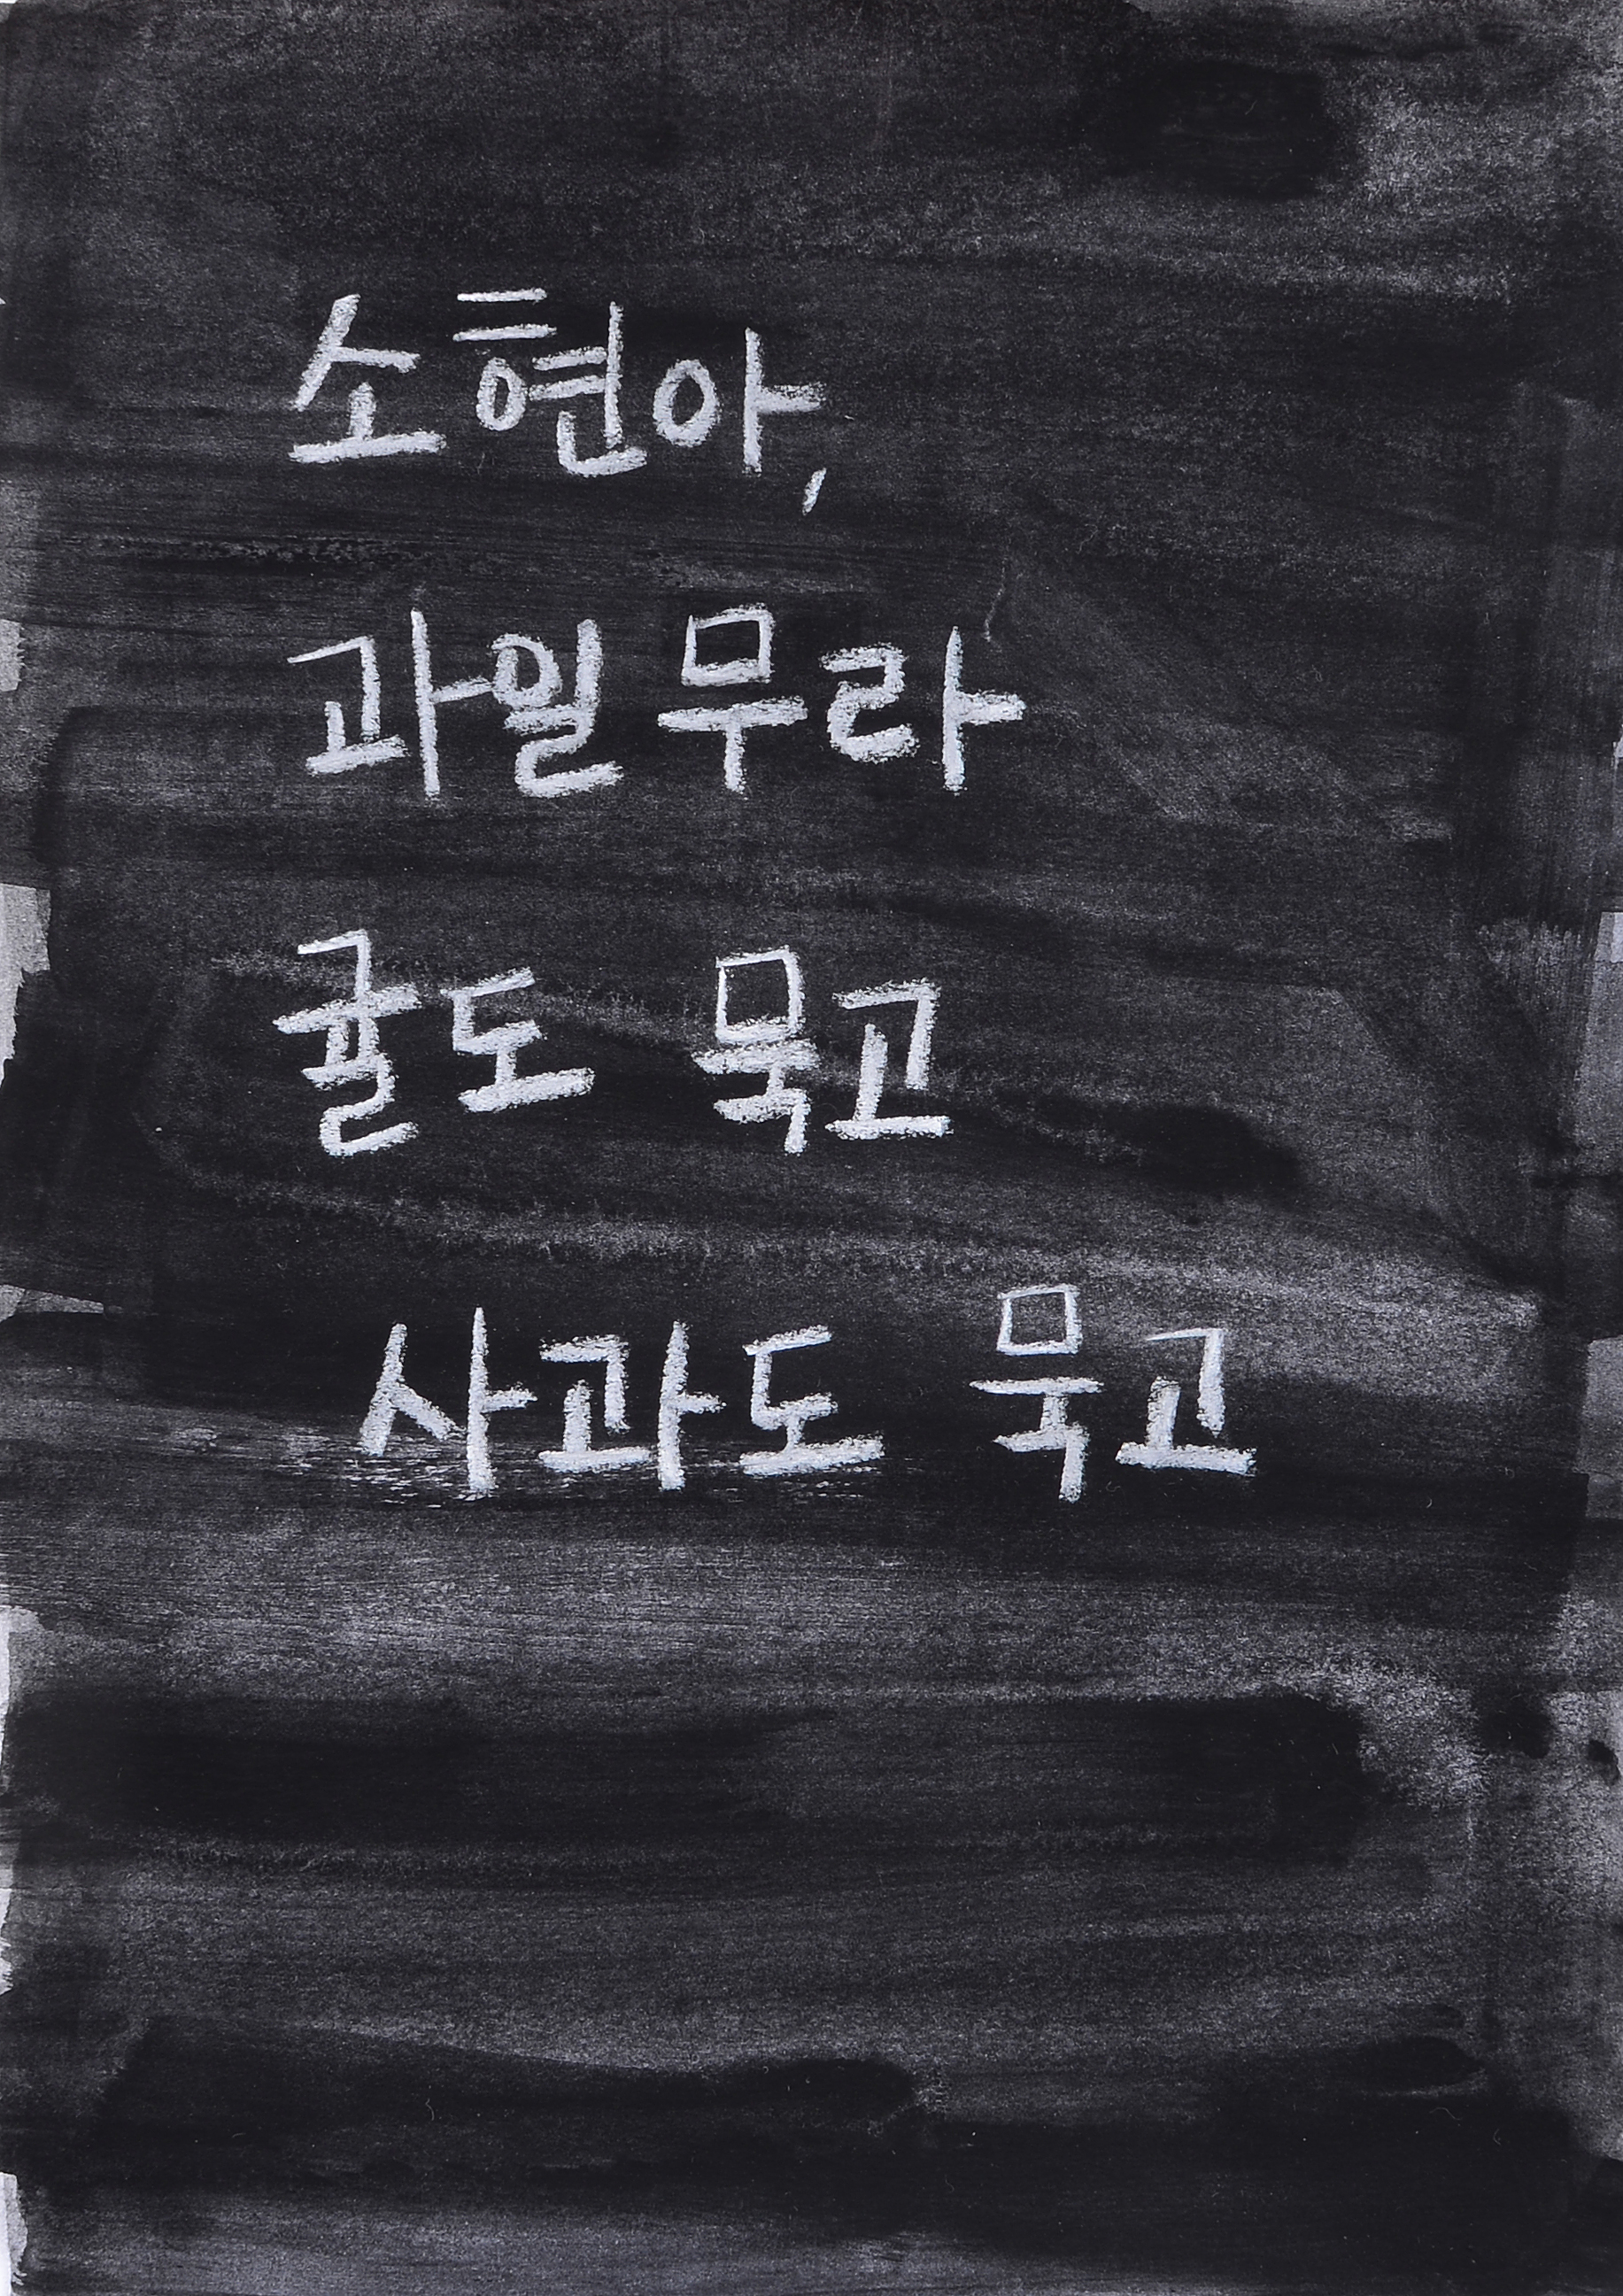 소현아,
과일 무라
귤도 묵고
사과도 묵고